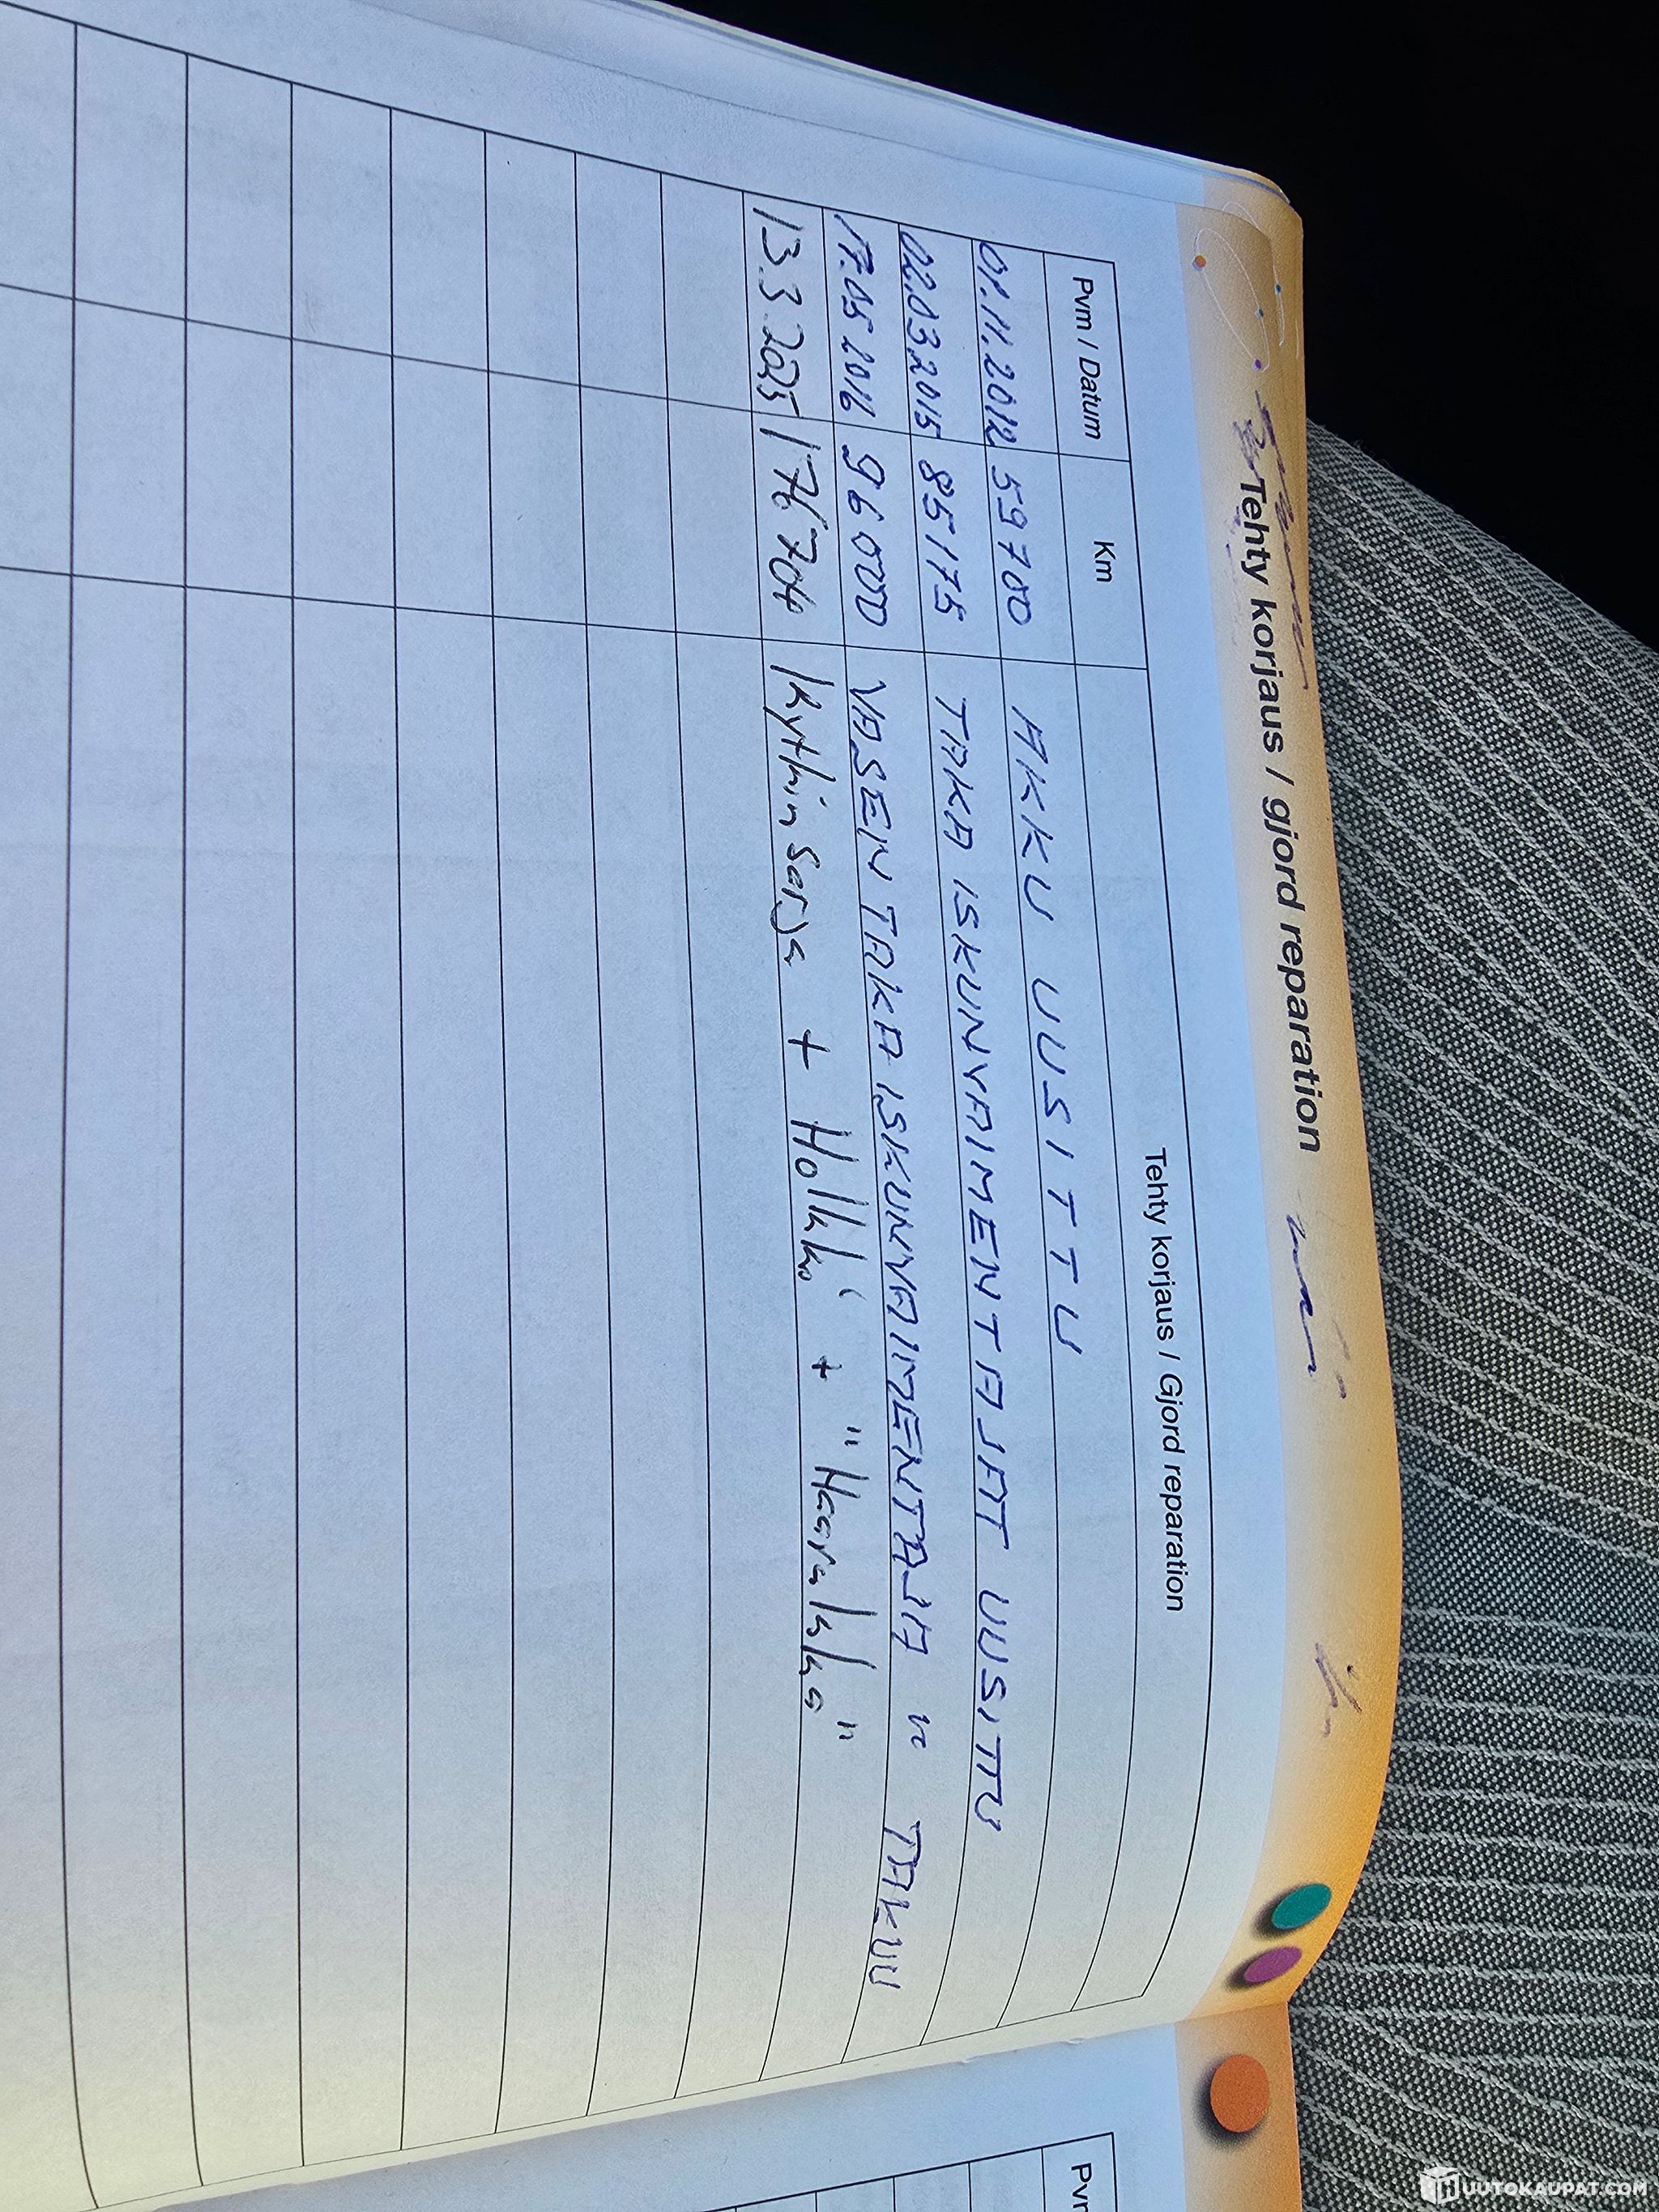 Tehty korjaus / gjord reparation
Pvm / Datum Km Tehty korjaus / Gjord reparation
01.11.2012 59700 AKKU UUSITTU
02.03.2015 85175 TAKA ISKUNVAIMENTAJAT UUSITTU
17.05.2016 96000 VASEN TAKA ISKUNVAIMENTAJA " TAKUU
13.3.2025 176704 Kytkinsarja + Holkki + "Haarukka"
HUUTOKAUPAT.COM